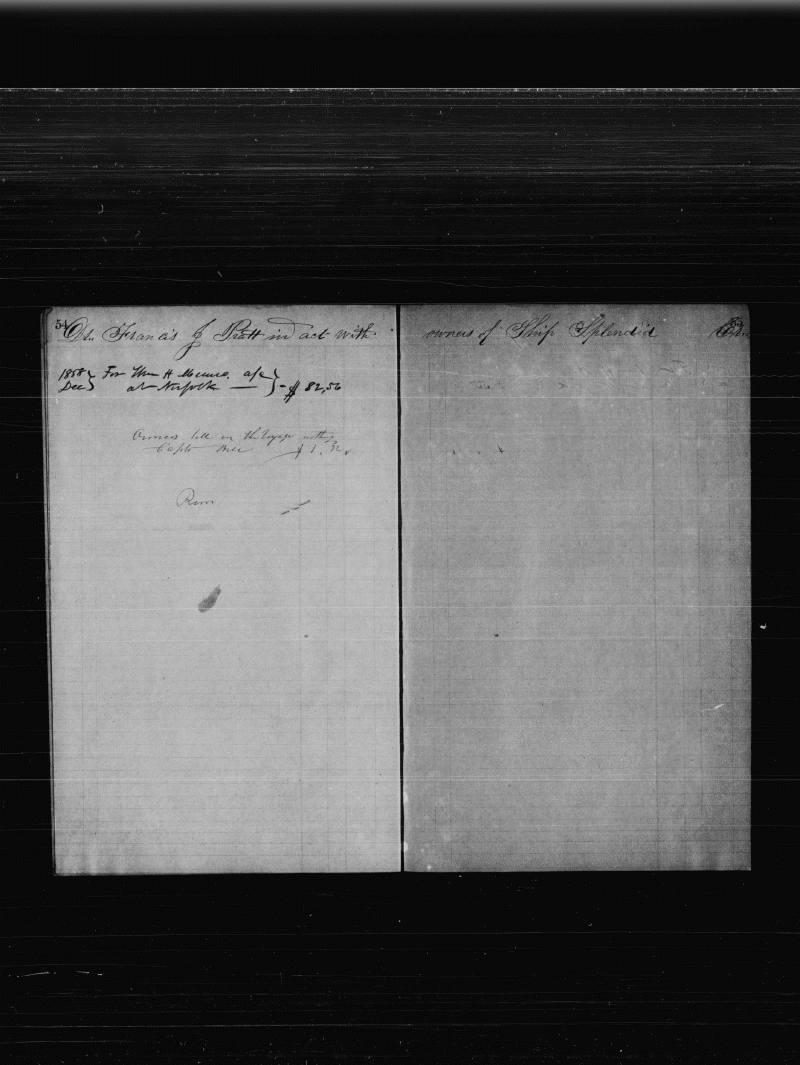 54
Dr. Francis J Pratt in act with
1858 } For Wm H a/c }
Dec } at Norfolk — } - $ 82,56
Owners bill on the Voyage with
Capt $ 1.
owners of Ship Splendid
Cr.